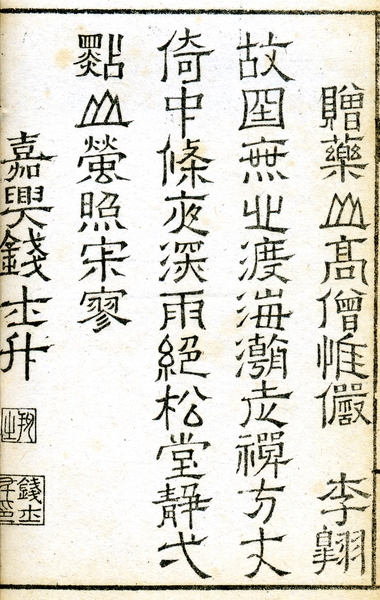 贈藥山高僧惟儼　李翱
故國無心渡海潮老禪方丈
倚中條夜深雨絕松堂靜弌
點山螢照宋寥
嘉興錢士升
抑之
錢士升印